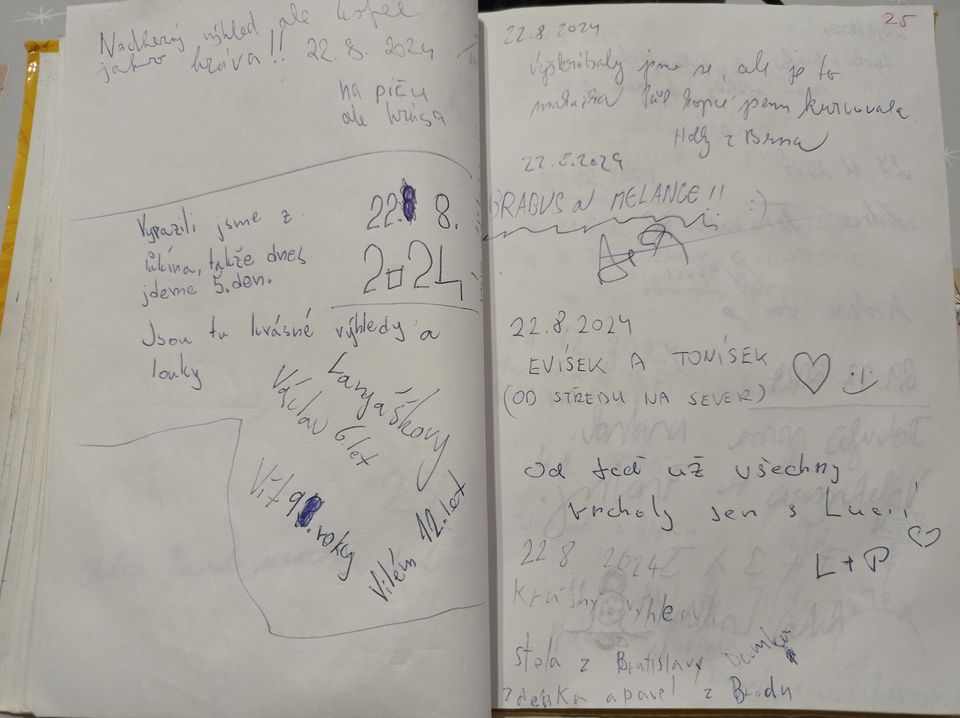 Nadherný výhled ale kopec
jako kráva!! 22.8. 2024
na piču
ale krása
Vyrazili jsme z
takže dnes
jdeme 5.den.
22. 8.
2024
Jsou tu krásné výhledy a
louky
Václav 6.let
Vít 9.roky
Vilém 12.let
25
22.8.2024
Vyškrábaly jsme se, ale je to
kopec jsem
z Brna
22.8.2024
BRABUS N MELANGE!! :)
22.8.2024
EVÍSEK A TONÍSEK
(OD STŘEDU NA SEVER)
Od teď už všechny
vrcholy jen s Luci!
L+P
22.8 2024
Krásný výhled
Stela z Bratislavy
Zdeňka a pavel z Brodu